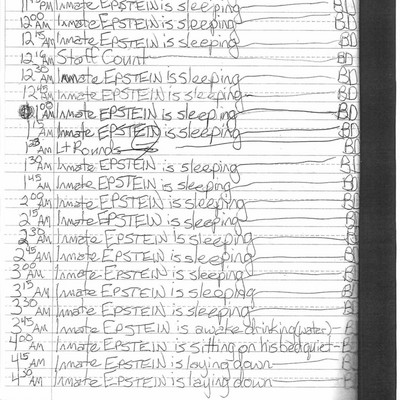 Inmate EPSTEIN is sleeping
12 00 AM Inmate EPSTEIN is sleeping BD
12 15 AM Inmate EPSTEIN is sleeping BD
12 16 AM Staff Count BD
12 30 AM Inmate EPSTEIN is sleeping BD
12 45 AM Inmate EPSTEIN is sleeping BD
1 00 AM Inmate EPSTEIN is sleeping BD
AM Inmate EPSTEIN is sleeping BD
AM Lt Rounds BD
1 30 AM Inmate EPSTEIN is sleeping BD
1 45 AM Inmate EPSTEIN is sleeping BD
2 00 AM Inmate EPSTEIN is sleeping BD
2 15 AM Inmate EPSTEIN is sleeping BD
2 30 AM Inmate EPSTEIN is sleeping BD
2 45 AM Inmate EPSTEIN is sleeping BD
3 00 AM Inmate EPSTEIN is sleeping BD
3 15 AM Inmate EPSTEIN is sleeping BD
3 30 AM Inmate EPSTEIN is sleeping BD
3 45 AM Inmate EPSTEIN is awake drinking (water)
4 00 AM Inmate EPSTEIN is sitting on his bed quiet
4 15 AM Inmate EPSTEIN is laying down BD
4 30 AM Inmate EPSTEIN is laying down BD